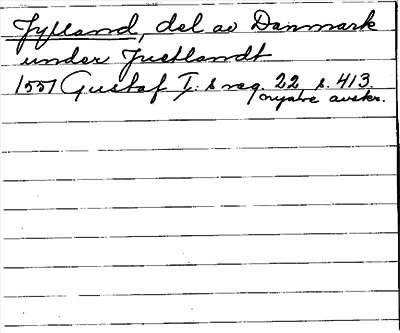 Jylland, del av Danmark
under Juthlandt
1551 Gustaf I:s reg. 22 s. 413.
(nyare avskr.